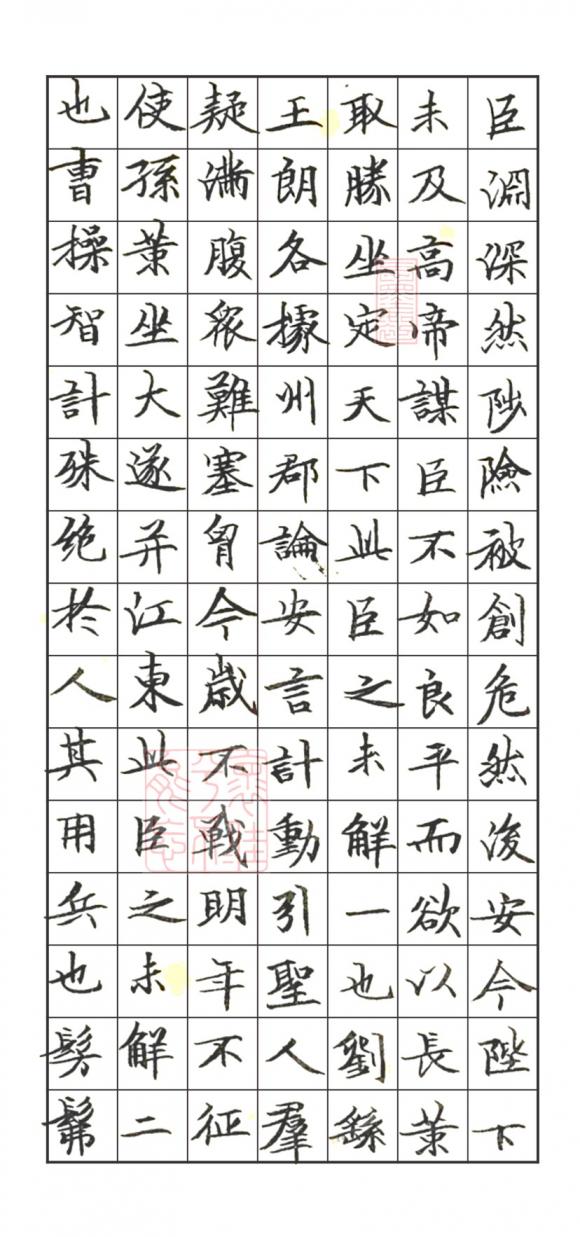 臣淵深然陟險被創危然後安今陛下
未及高帝謀臣不如良平而欲以長策
取勝坐定天下此臣之未解一也劉繇
王朗各據州郡論安言計動引聖人羣
疑滿腹衆難塞胷今歲不戰明年不征
使孫策坐大遂并江東此臣之未解二
也曹操智計殊绝於人其用兵也髣髴